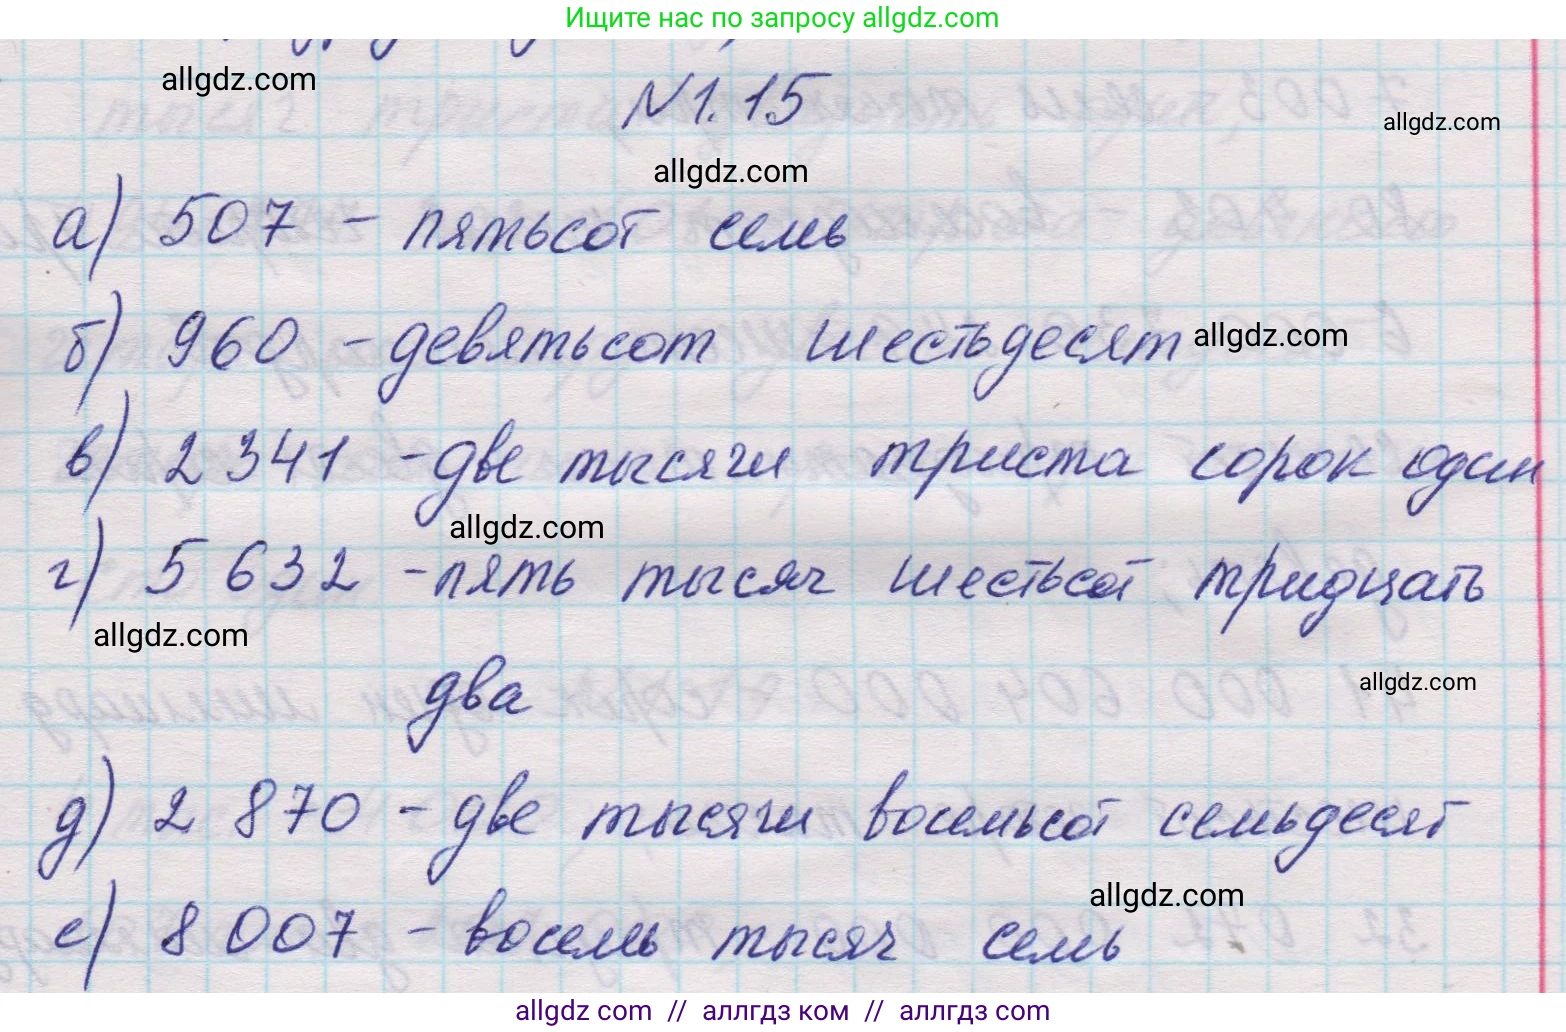 Ищите нас по запросу allgdz.com
allgdz.com
N1.15
allgdz.com
allgdz.com
а) 507 - пятьсот семь
б) 960 - девятьсот шестьдесят allgdz.com
в) 2 341 - две тысячи триста сорок один
allgdz.com
г) 5 632 - пять тысяч шестьсот тридцать
allgdz.com
два
allgdz.com
д) 2 870 - две тысячи восемьсот семьдесят
allgdz.com
е) 8 007 - восемь тысяч семь
allgdz com // аллгдз ком // аллгдз com